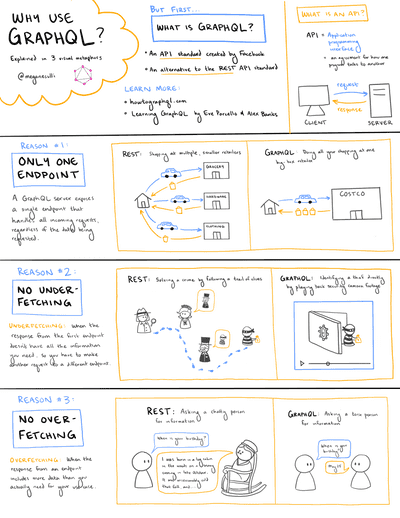 WHY USE
GRAPHQL?
Explained in 3 visual metaphors
@megansulli
BUT FIRST...
WHAT IS GRAPHQL?
• An API standard created by Facebook
• An alternative to the REST API standard
LEARN MORE:
• howtographql.com
• Learning GraphQL by Eve Porcello & Alex Banks
WHAT IS AN API?
API = Application
programming
interface
request
response
CLIENT
SERVER
REASON #1:
ONLY ONE
ENDPOINT
A GraphQL server exposes
a single endpoint that
handles all incoming requests,
regardless of the data being
requested.
REST: Shopping at multiple, smaller retailers
GROCERY
HARDWARE
CLOTHING
GRAPHQL: Doing all your shopping at one
big-box retailer
COSTCO
REASON #2:
NO UNDER-
FETCHING
UNDERFETCHING: When the
response from the first endpoint
doesn't have all the information
you need, so you have to make
another request to a different endpoint.
REST: Solving a crime by following a trail of clues
GRAPHQL: Identifying a thief directly
by playing back security camera footage
REASON #3:
NO OVER-
FETCHING
OVERFETCHING: When the
response from an endpoint
includes more data than you
actually need for your use case.
REST: Asking a chatty person
for information
When is your birthday?
I was born in a log cabin
in the woods on a
GRAPHQL: Asking a terse person
for information
When is your
birthday?